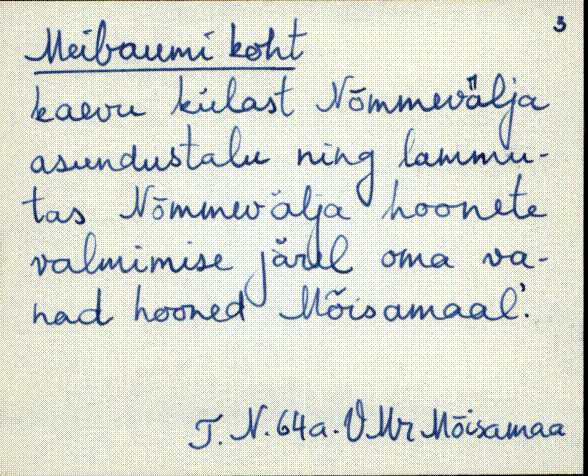 3
Meibaumi koht
kaevu külast Nõmmevälja
asundustalu ning lammu-
tas Nõmmevälja hoonete
valmimise järel oma va-
nad hooned Mõisamaal'.
T. N. 64a. VMr Mõisamaa